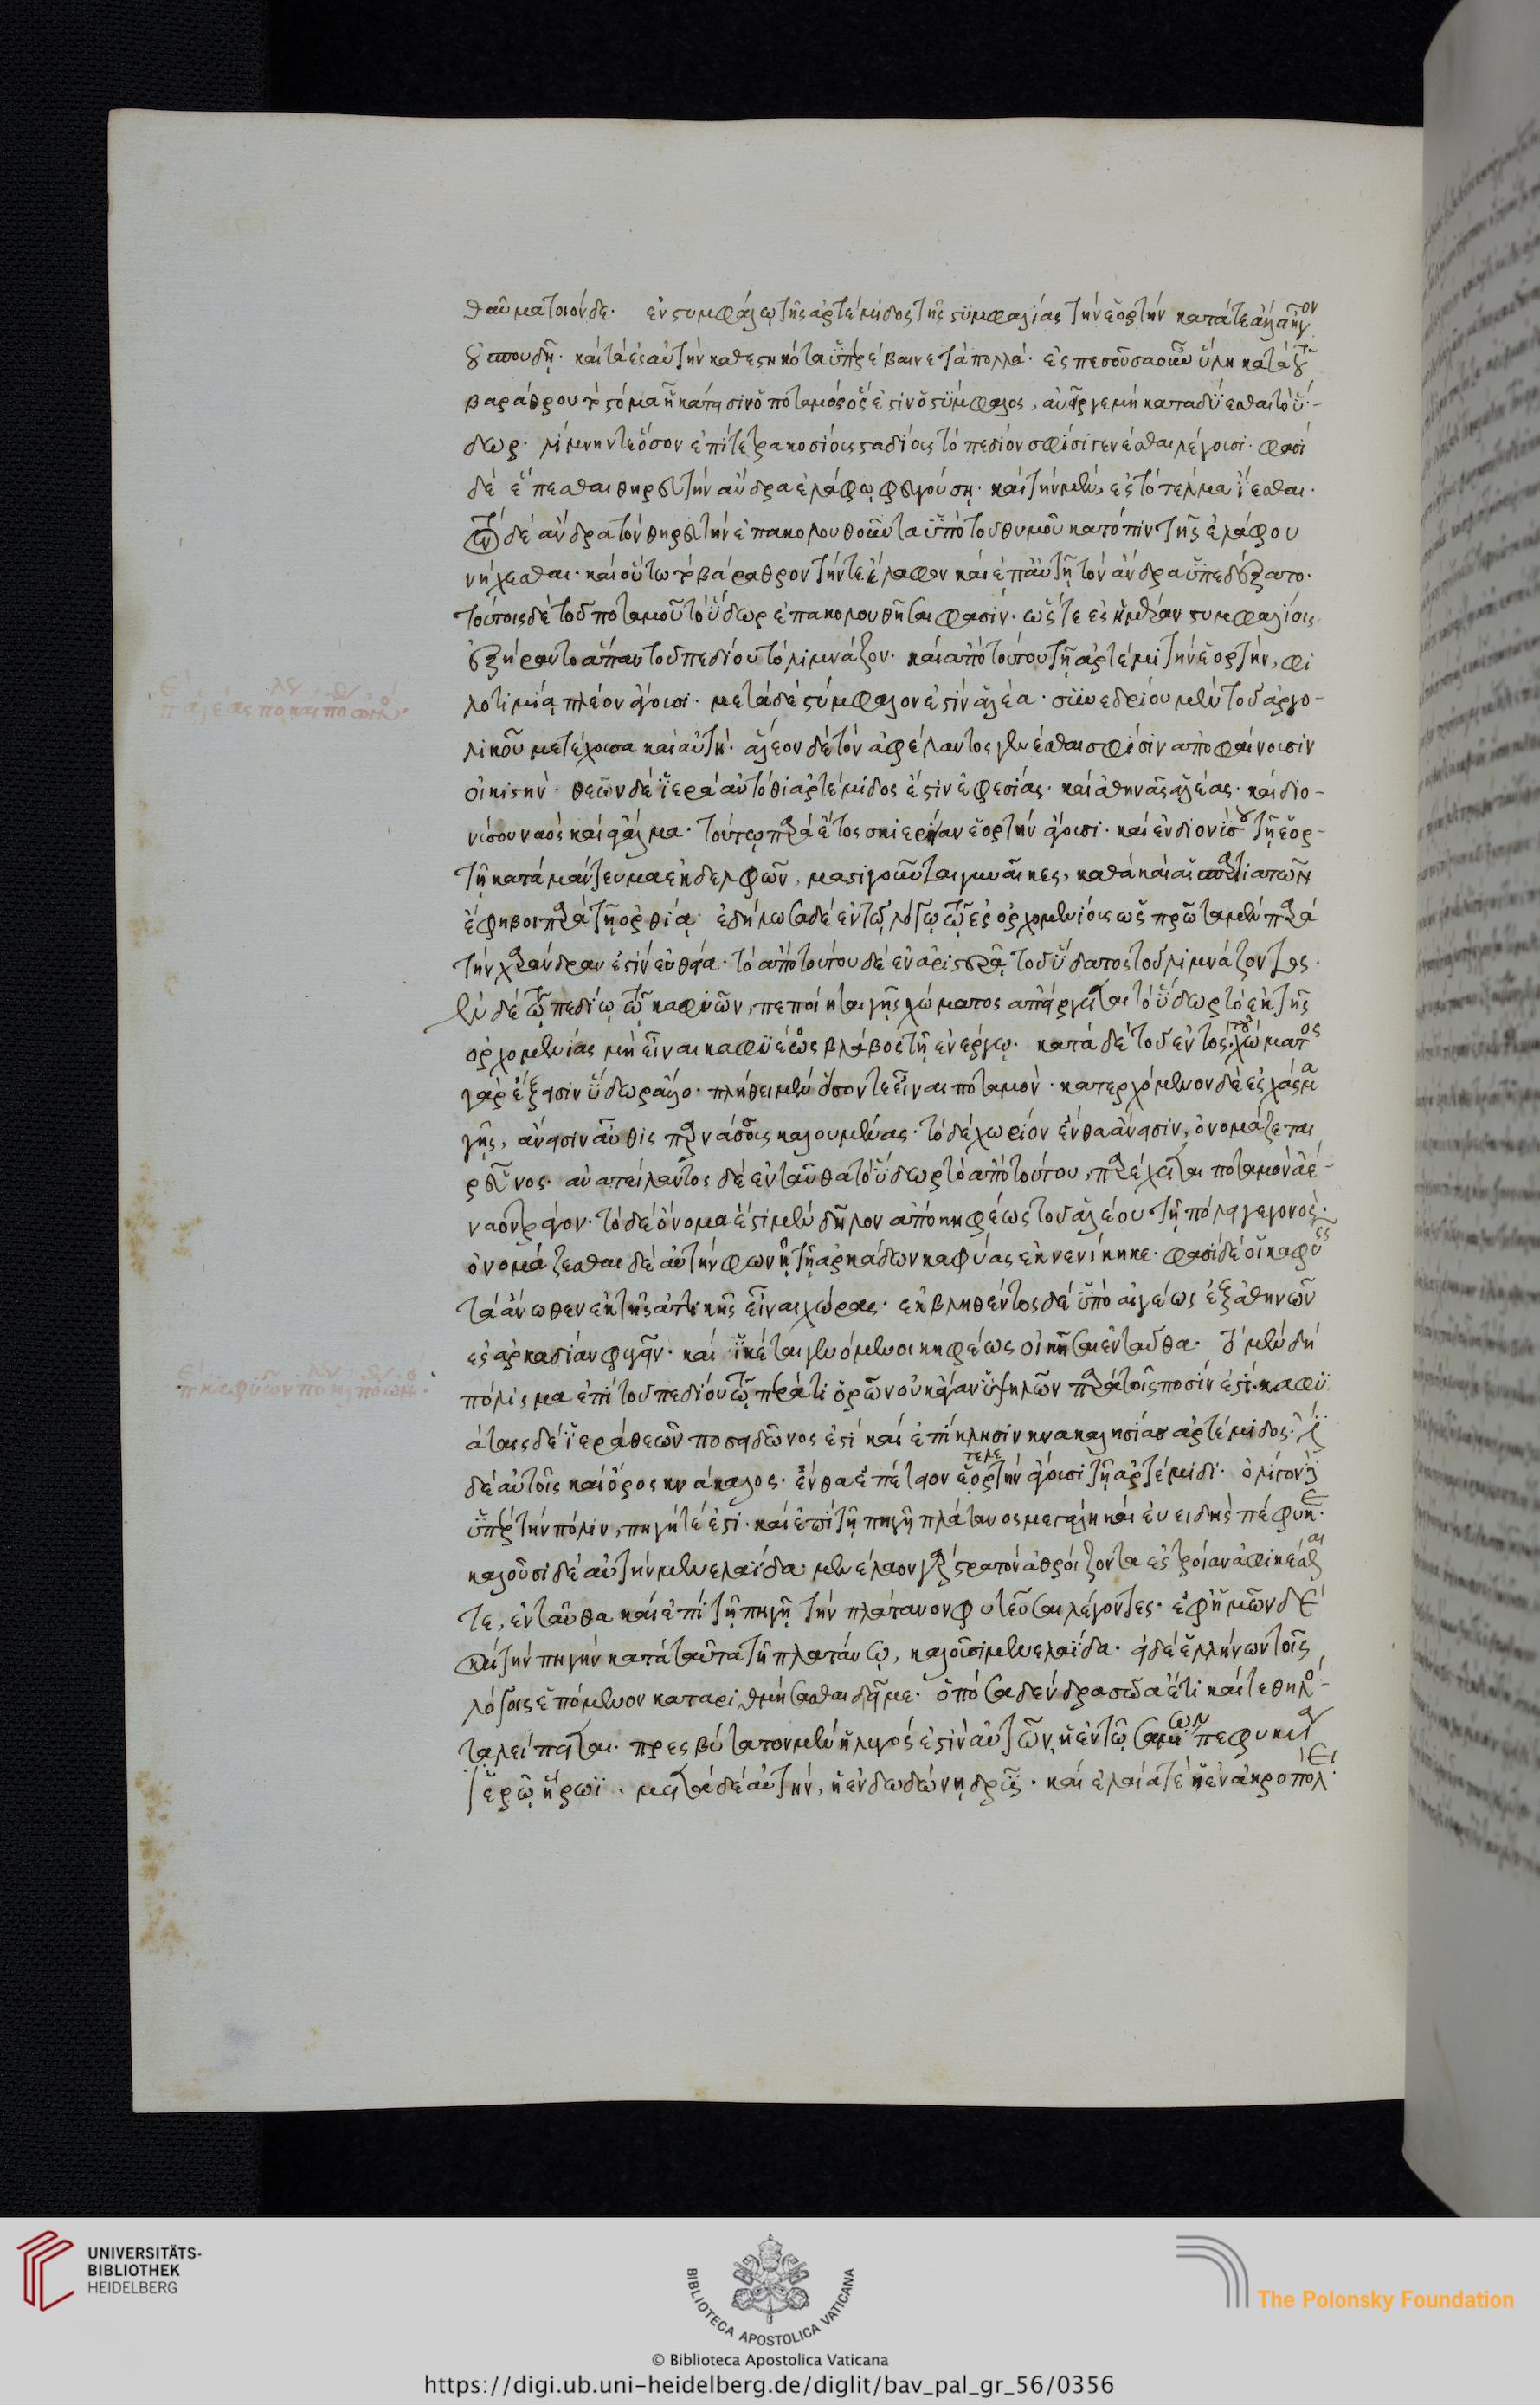 θαῦμα τοιόνδε· ἐν στυμφάλῳ τῆς ἀρτέμιδος τῆς στυμφαλίας τὴν ἑορτὴν κατά τε ἄλλα ἦγον
οὐ σπουδῆι· καὶ τὰ ἐς αὐτὴν καθεστηκότα ὑπερέβαινε τὰ πολλά· ἐσπεσοῦσα οὖν ὕλη κατὰ τοῦ
βαράθρου τὸ στόμα ἧ κάτεισιν ὁ ποταμός ὅς ἐστιν ὁ στύμφαλος, ἀνεῖργε μὴ καταδύεσθαι τὸ ὕ-
δωρ· λίμνην τε ὅσον ἐπὶ τετρακοσίοις σταδίοις τὸ πεδίον σφίσι γενέσθαι λέγουσι· φασὶ
δὲ ἕπεσθαι θηρευτὴν ἄνδρα ἐλάφῳ φευγούσῃ· καὶ τὴν μὲν ἐς τὸ τέλμα ἵεσθαι·
τὸν δὲ ἄνδρα τὸν θηρευτὴν ἐπακολουθοῦντα ὑπὸ τοῦ θυμοῦ κατόπιν τῆς ἐλάφου
νήχεσθαι· καὶ οὕτω τὸ βάραθρον τήν τε ἔλαφον καὶ ἐπ' αὐτῇ τὸν ἄνδρα ὑπεδέξατο·
τούτοις δὲ τοῦ ποταμοῦ τὸ ὕδωρ ἐπακολουθῆσαι φασίν· ὥστε ἐς ἡμέραν στυμφαλίοις
ἐξήραντο ἅπαν τοῦ πεδίου τὸ λιμνάζον· καὶ ἀπὸ τούτου τῇ ἀρτέμιδι τὴν ἑορτὴν, φι
λοτιμίᾳ πλέον ἄγουσι· μετὰ δὲ στύμφαλον ἐστὶν ἀλέα· συνεδρίου μὲν τοῦ ἀργο-
λικοῦ μετέχουσα καὶ αὐτή· ἄλεον δὲ τὸν ἀφείδαντος γενέσθαι σφίσιν ἀποφαίνουσιν
οἰκιστήν· θεῶν δὲ ἱερὰ αὐτόθι ἀρτέμιδος ἐστὶν ἐφεσίας· καὶ ἀθηνᾶς ἀλέας· καὶ διο-
νύσου ναὸς καὶ ἄγαλμα· τούτῳ παρὰ ἔτος σκιερίαν ἑορτὴν ἄγουσι· καὶ ἐν διονύσου τῇ ἑορ-
τῇ κατὰ μάντευμα ἐκ δελφῶν, μαστιγοῦνται γυναῖκες, καθὰ καὶ οἱ σπαρτιατῶν
ἔφηβοι παρὰ τῇ ὀρθίᾳ· ἐδήλωσα δὲ ἐν τῷ λόγῳ τῷ ἐς ὀρχομενίους ὡς πρῶτα μὲν παρὰ
τὴν χαράδραν ἐστὶν εὐθεῖα· τὸ ἀπὸ τούτου δὲ ἐν ἀριστερᾷ τοῦ ὕδατος τοῦ λιμνάζοντος·
ἐν δὲ τῷ πεδίῳ τῷ καφυῶν, πεποίηται γῆς χῶματος ἀπείργεται τὸ ὕδωρ τὸ ἐκ τῆς
ὀρχομενίας μὴ εἶναι καφυέως βλάβος τῇ ἐνεργῳ· κατὰ δὲ τοῦ ἐντὸς τοῦ χώματος
παρέξεισιν ὕδωρ ἄλλο· πλήθει μὲν ὅσον τε εἶναι ποταμόν· κατερχόμενον δὲ ἐς χάσμα
γῆς, ἄνεισιν αὖθις παρὰ νάσους καλουμένας· τὸ δὲ χωρίον ἔνθα ἄνεισιν, ὀνομάζεται
ρεῦνος· ἀνατείλαντος δὲ ἐνταῦθα τὸ ὕδωρ τὸ ἀπὸ τούτου, παρέχεται ποταμὸν ἀέ-
ναον τράγον· τὸ δὲ ὄνομα ἔστι μὲν δῆλον ἀπὸ κηφέως τοῦ ἀλέου τῇ πόλει γεγονός·
ὀνομάζεσθαι δὲ αὐτὴν φωνῇ τῇ ἀρκάδων καφύας ἐκνενίκηκε· φασὶ δὲ οἱ καφυεῖς
τὰ ἄνωθεν ἐκ τῆς ἀττικῆς εἶναι χώρας· ἐκβληθέντος δὲ ὑπὸ αἰγέως ἐξ ἀθηνῶν
ἐς ἀρκαδίαν φυγεῖν· καὶ ἱκέται γενόμενοι κηφέως οἰκῆσαι ἐνταῦθα· τὸ μὲν δὴ
πόλισμα ἐπὶ τοῦ πεδίου τῷ πέρατι ὀρῶν οὐκ ἄγαν ὑψηλῶν παρὰ τοῖς ποσίν ἐστι· καφυ
άταις δὲ ἱερὰ θεῶν ποσειδῶνος ἐστί καὶ ἐπίκλησιν κνακαλησίας ἀρτέμιδος· ἔστι
δὲ αὐτοῖς καὶ ὄρος κνάκαλος· ἔνθα ἐπέτειον τελετὴν ἄγουσι τῇ ἀρτέμιδι· ὀλίγον δὲ
ὑπὲρ τὴν πόλιν, πηγή τέ ἐστι· καὶ ἐπὶ τῇ πηγῇ πλάτανος μεγάλη καὶ εὐειδὴς πέφυκε·
καλοῦσι δὲ αὐτὴν μενελαΐδα· μενέλαον γὰρ στρατὸν ἀθροίζοντα ἐς τροίαν ἀφικέσθαι
τε, ἐνταῦθα καὶ ἐπὶ τῇ πηγῇ τὴν πλάτανον φυτεῦσαι λέγοντες· ἐφ' ἡμῶν δὲ
καὶ τὴν πηγὴν κατὰ ταὐτὰ τῇ πλατάνῳ, καλοῦσι μενελαΐδα· εἰ δὲ ἑλλήνων τοῖς
λόγοις ἑπόμενον καταριθμήσασθαι δεῖ με· ὁπόσα δένδρα σῶα ἔτι καὶ τεθηλό-
τα λείπεται· πρεσβύτατον μὲν ἡ λύγος ἐστὶν αὐτῶν, ἡ ἐν τῷ σαμίων πεφυκυῖα
ἱερῷ ἥρωϊ· μετὰ δὲ αὐτὴν, ἡ ἐν δωδώνῃ δρῦς· καὶ ἐλαία τέ ἡ ἐν ἀκροπόλει
UNIVERSITÄTS-
BIBLIOTHEK
HEIDELBERG
BIBLIOTECA APOSTOLICA VATICANA
The Polonsky Foundation
© Biblioteca Apostolica Vaticana
https://digi.ub.uni-heidelberg.de/diglit/bav_pal_gr_56/0356